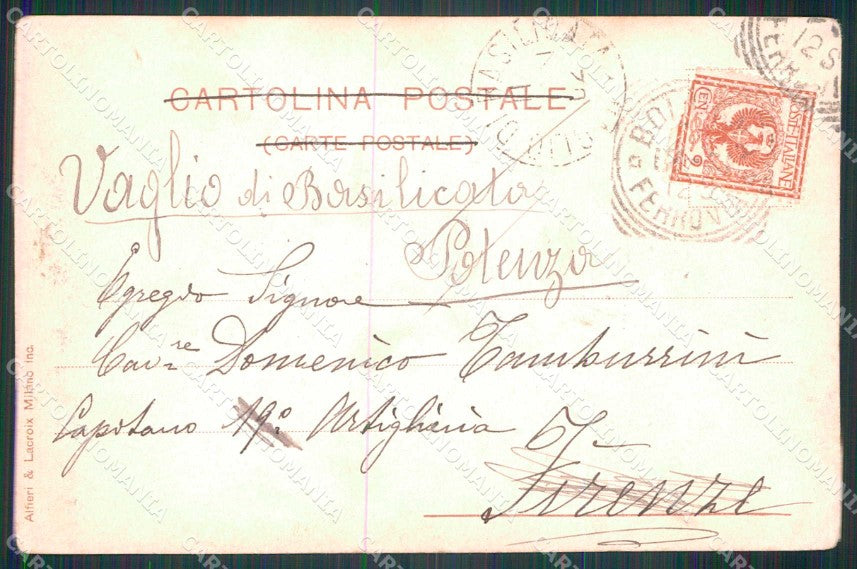 CARTOLINA POSTALE
(CARTE POSTALE)
Vaglio di Basilicata
Potenza
Egregio Signore
Cav.re Domenico Tamburrini
Capitano 19° Artiglieria
Firenze
Alfieri & Lacroix Milano inc.
POSTE ITALIANE
CENT. 2
BOL
FERROVIA
12 S
FERROVI
BASILICATA
CARTOLINOMANIA